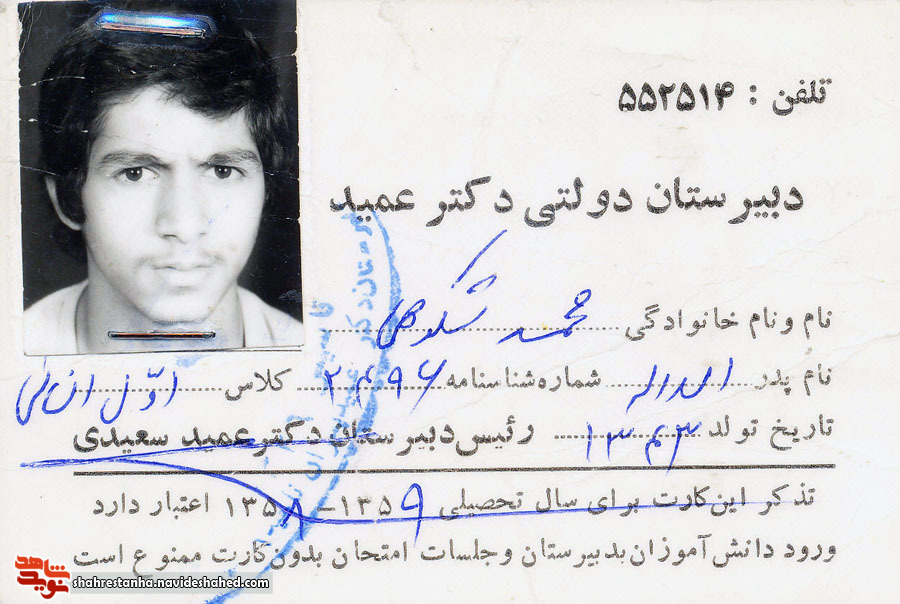 تلفن : ۵۵۲۵۱۴
دبیرستان دولتی دکتر عمید
نام و نام خانوادگی محمد شکوهی
نام پدر اسداله شماره شناسنامه ۲۰۴۹۶ کلاس اول انسانی
تاریخ تولد ۱۳۴۳ رئیس دبیرستان دکتر عمید سعیدی
تذکر این کارت برای سال تحصیلی ۱۳۵۹-۱۳۵۸ اعتبار دارد
ورود دانش آموزان بدبیرستان و جلسات امتحان بدون کارت ممنوع است
شاهد
نوید
shahrestanha.navideshahed.com